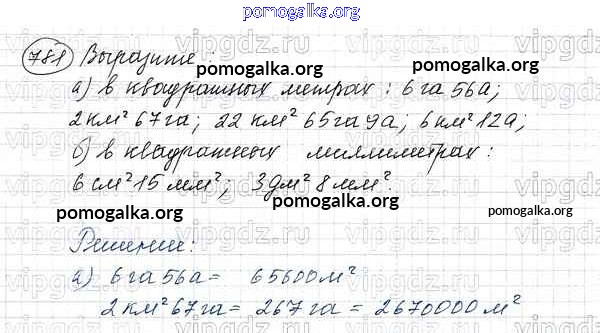 pomogalka.org
781 Выразите:
pomogalka.org
а) в квадратных метрах: 6 га 56 а;
2 км² 67 га; 22 км² 65 га 9 а; 6 км² 12 а;
б) в квадратных миллиметрах:
6 см² 15 мм²; 3 дм² 8 мм².
pomogalka.org pomogalka.org pomogalka.org
Решение:
а) 6 га 56 а = 65600 м²
2 км² 67 га = 267 га = 2670000 м²
vipgdz.ru vipgdz.ru vipgdz.ru